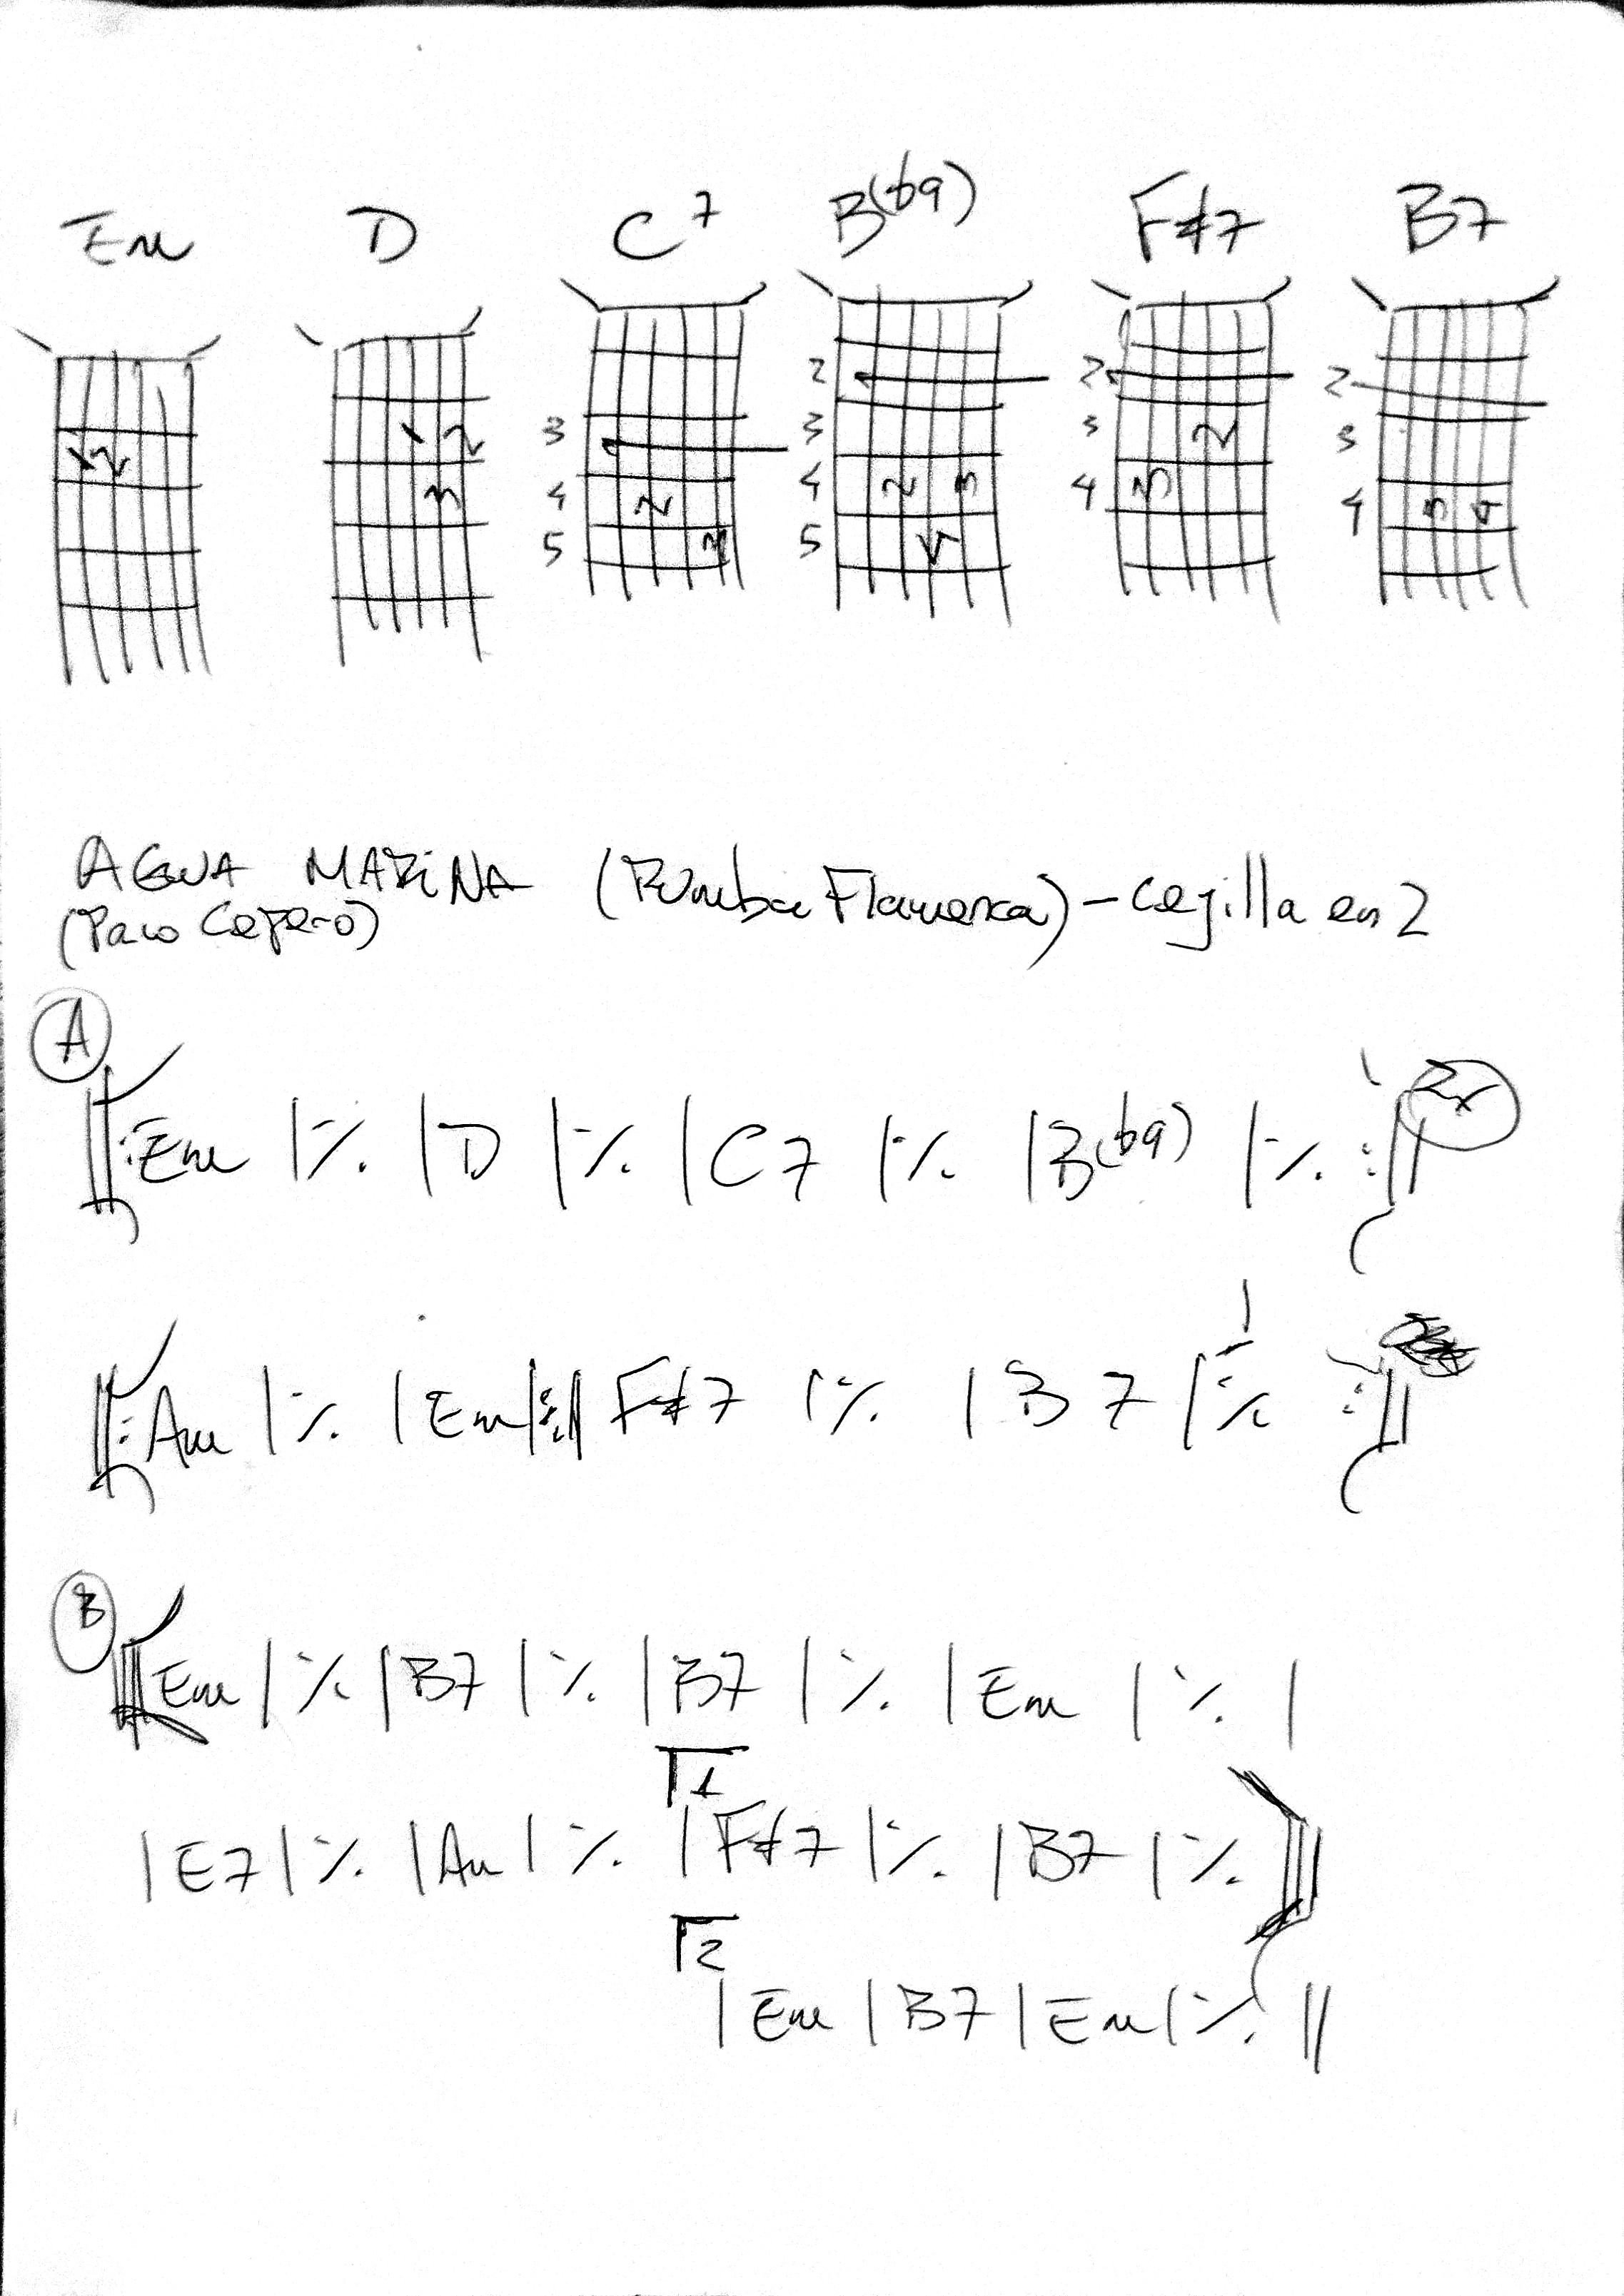 Em D C7 B(b9) F#7 B7
2 2 2
3 3 3 3
1 2 1 2 3 4 2 4 2 3 4 3 2 4 3 4
5 3 5 4
AGUA MARiNA (Rumba Flamenca) – Cejilla en 2
(Paco Cepero)
A
||: Em | ٪ | D | ٪ | C7 | ٪ | B(b9) | ٪ :|| 2x
||: Am | ٪ | Em | ٪ || F#7 | ٪ | B7 | ٪ :||
B
|| Em | ٪ | B7 | ٪ | B7 | ٪ | Em | ٪ |
1
| E7 | ٪ | Am | ٪ | F#7 | ٪ | B7 | ٪ ||
2
| Em | B7 | Em | ٪ ||